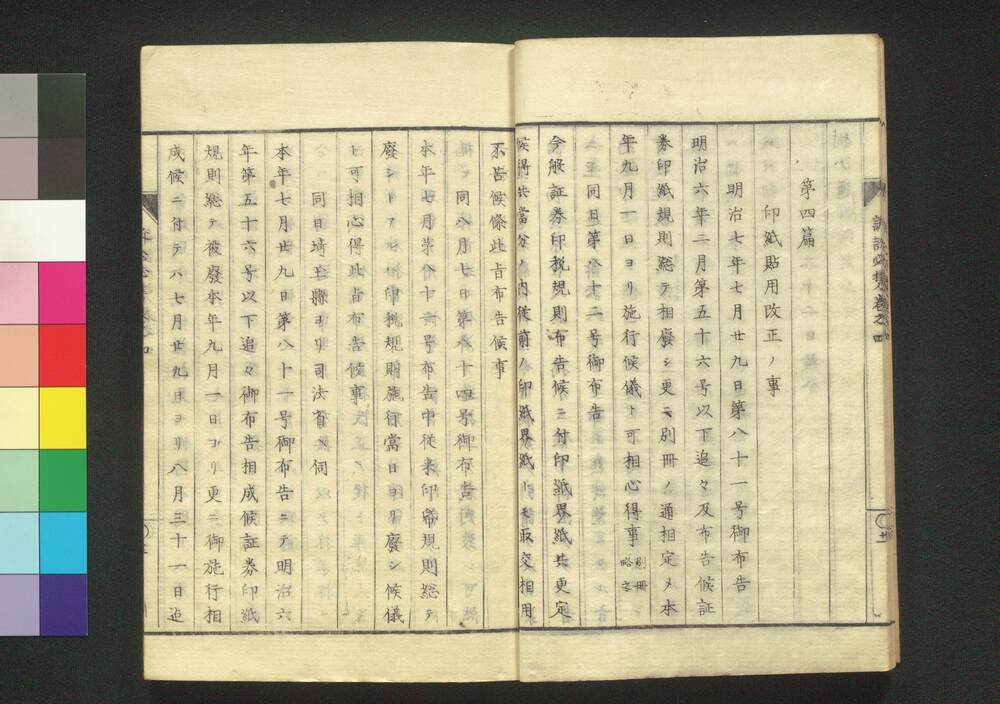 第四篇
印紙貼用改正ノ事
明治七年七月廿九日第八十一号御布告
明治六年二月第五十六号以下追々及布告候証
券印紙規則総テ相廃シ更ニ別冊ノ通相定メ本
年九月一日ヨリ施行候儀ト可相心得事 別冊略之
同日第八十二号御布告
今般証券印税規則布告候ニ付印紙界紙共更定
候得共当分ノ内従前ノ印紙界紙トモ取交相用
不苦候條此旨布告候事
同八月七日第八十四号御布告
本年七月第八十一号布告中従来印紙規則総テ
廃シトアルハ印税規則施行当日ヨリ廃シ候儀
ト可相心得此旨布告候事
同日埼玉縣ヨリ司法省ヘ伺
本年七月廿九日第八十一号御布告ニテ明治六
年第五十六号以下追々御布告相成候証券印紙
規則総テ被廃本年九月一日ヨリ更ニ御施行相
成候ニ付テハ七月廿九日ヨリ八月三十一日迄